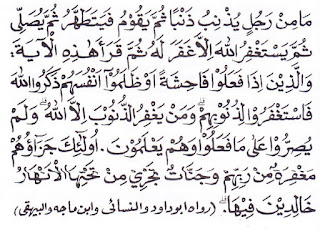 مَامِنْ رَجُلٍ يُذْنِبُ ذَنْبًا ثُمَّ يَقُوْمُ فَيَتَطَهَّرُ ثُمَّ يُصَلِّى
ثُمَّ يَسْتَغْفِرُ اللهَ اِلَّا غَفَرَ لَهُ ثُمَّ قَرَأَ هٰذِهِ الْاٰيَةَ:
وَالَّذِيْنَ اِذَا فَعَلُوْا فَاحِشَةً اَوْظَلَمُوْا اَنْفُسَهُمْ ذَكَرُوا اللهَ
فَاسْتَغْفَرُوْا لِذُنُوْبِهِمْ وَمَنْ يَغْفِرُ الذُّنُوْبَ اِلَّا اللهُ وَلَمْ
يُصِرُّوْا عَلٰى مَافَعَلُوْا وَهُمْ يَعْلَمُوْنَ. اُولٰئِكَ جَزَاؤُهُمْ
مَغْفِرَةٌ مِنْ رَبِّهِمْ وَجَنَّاتٌ تَجْرِيْ مِنْ تَحْتِهَا الْاَنْهَارُ
خَالِدِيْنَ فِيْهَا (رواه ابوداود والنسائى وابن ماجه والبيهقى)